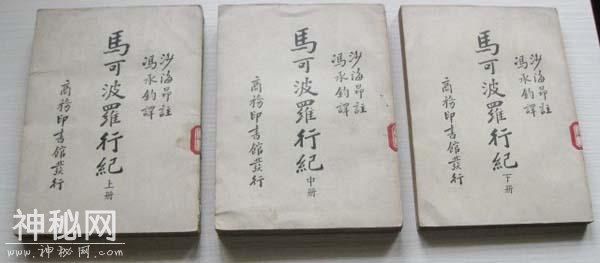 沙海昂註
馮承鈞譯
馬可波羅行紀 上册
商務印書館發行
沙海昂註
馮承鈞譯
馬可波羅行紀 中册
商務印書館發行
沙海昂註
馮承鈞譯
馬可波羅行紀 下册
商務印書館發行
神秘网
www.神秘网.com